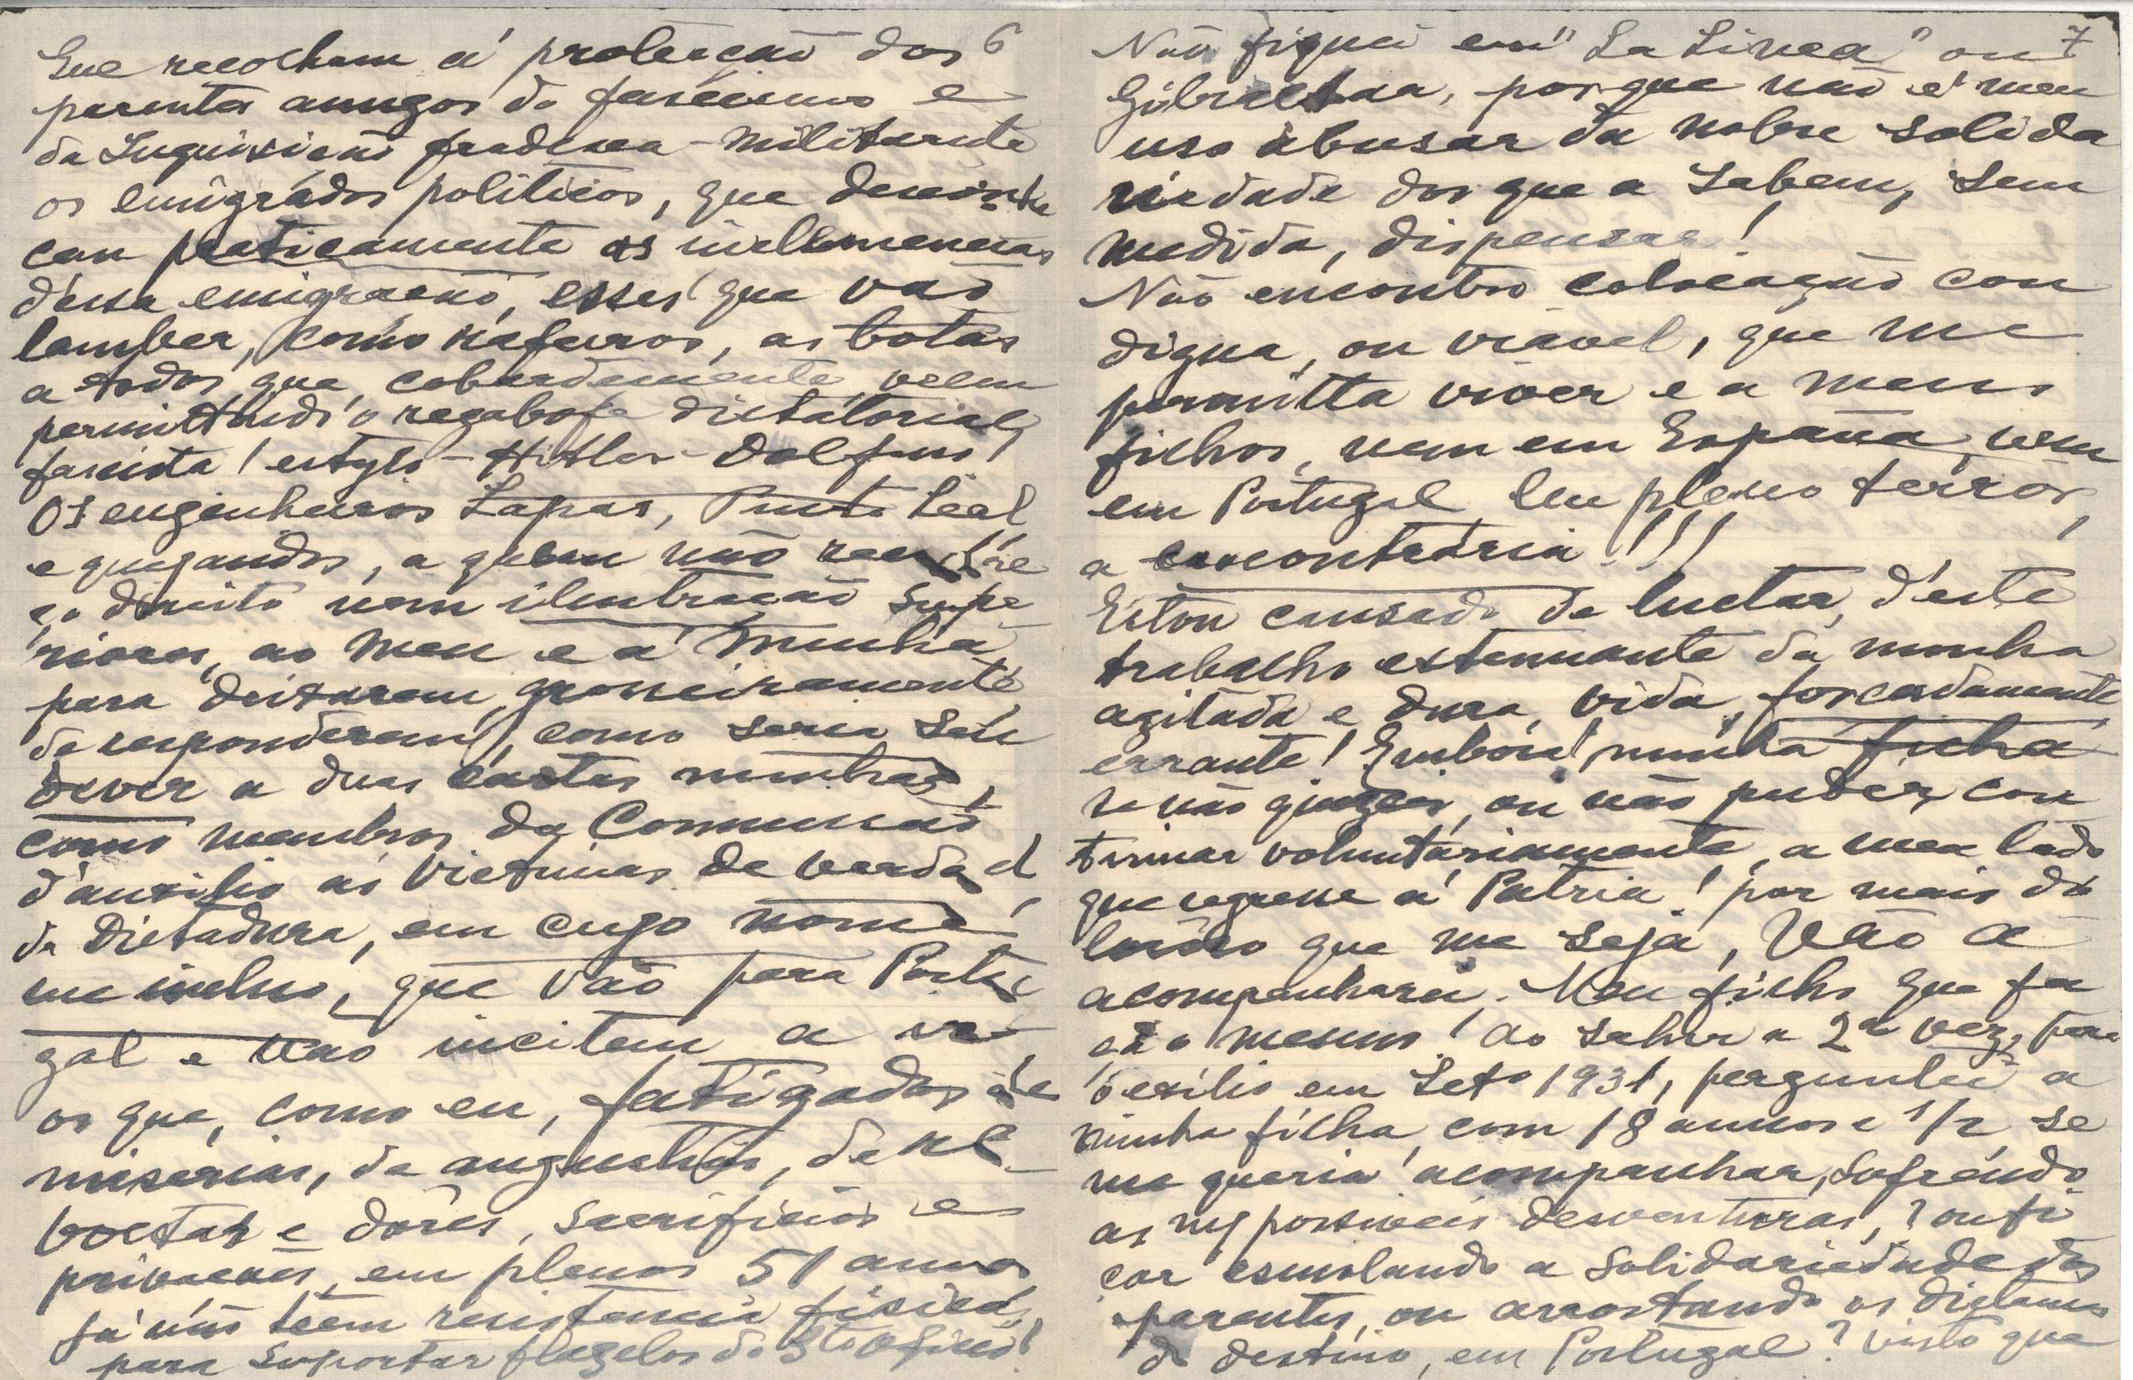 6
Que recolham á protecção dos
parentes amigos do fascismo e
da Inquisição fradesca-militarista
os emigrados politicos, que
praticamente as inclemencias
d'essa emigração, esses que vão
lamber, como rafeiros, as botas
a todos que, cobardemente veem
permittindo o regabofe dictatorial,
fascista! estylo-Hitler-Dolfuss!
Os engenheiros Lapas, Leal
e quejandos, a quem não reconhe
ço direito nem illustração supe-
riores, ao meu e á minha
para deixarem, grosseiramente,
de responderem, como seria seu
dever a duas cartas minhas,
como membros da Commissão
d'auxilio ás Victimas de verdad
da Dictadura, em cujo nome
me incluo, que vão para Portu
gal e não incitem a ir
os que, como eu, fatigados de
miserias, de angustias, de re-
voltas e dôres, sacrificios e
privações, em plenos 51 annos
já não teem resistencia fisica,
para suportar flagelos do
7
Não fiquei em "La Linea" ou
Gibraltar, porque não é meu
uso abusar da nobre solida
riedade dos que a sabem, sem
medida, dispensar!
Não encontro colocação con
digna, ou viavel, que me
permitta viver e a meus
filhos, nem em España, nem
em Portugal. Em pleno terror,
a encontraria!!!
Estou cansado de luctar, d'este
trabalho extenuante da minha
agitada e dura, vida, forçadamente
errante! Embora! minha filha
se não quizer, ou não puder con
tinuar voluntariamente, a meu lado
que regresse á Patria! por mais do
loroso que me seja, Vão a
acompanharei. Meu filho que fa
ça o mesmo! Ao sahir a 2ª vez, para
o exilio em Setº 1931, perguntei a
minha filha, com 18 annos e 1/2 se
me queria acompanhar, sofrendo
as possiveis desventuras, ? ou fi
car esmolando a solidariedade dos
parentes, ou arrostando os dictames
do destino, em Portugal? Visto que